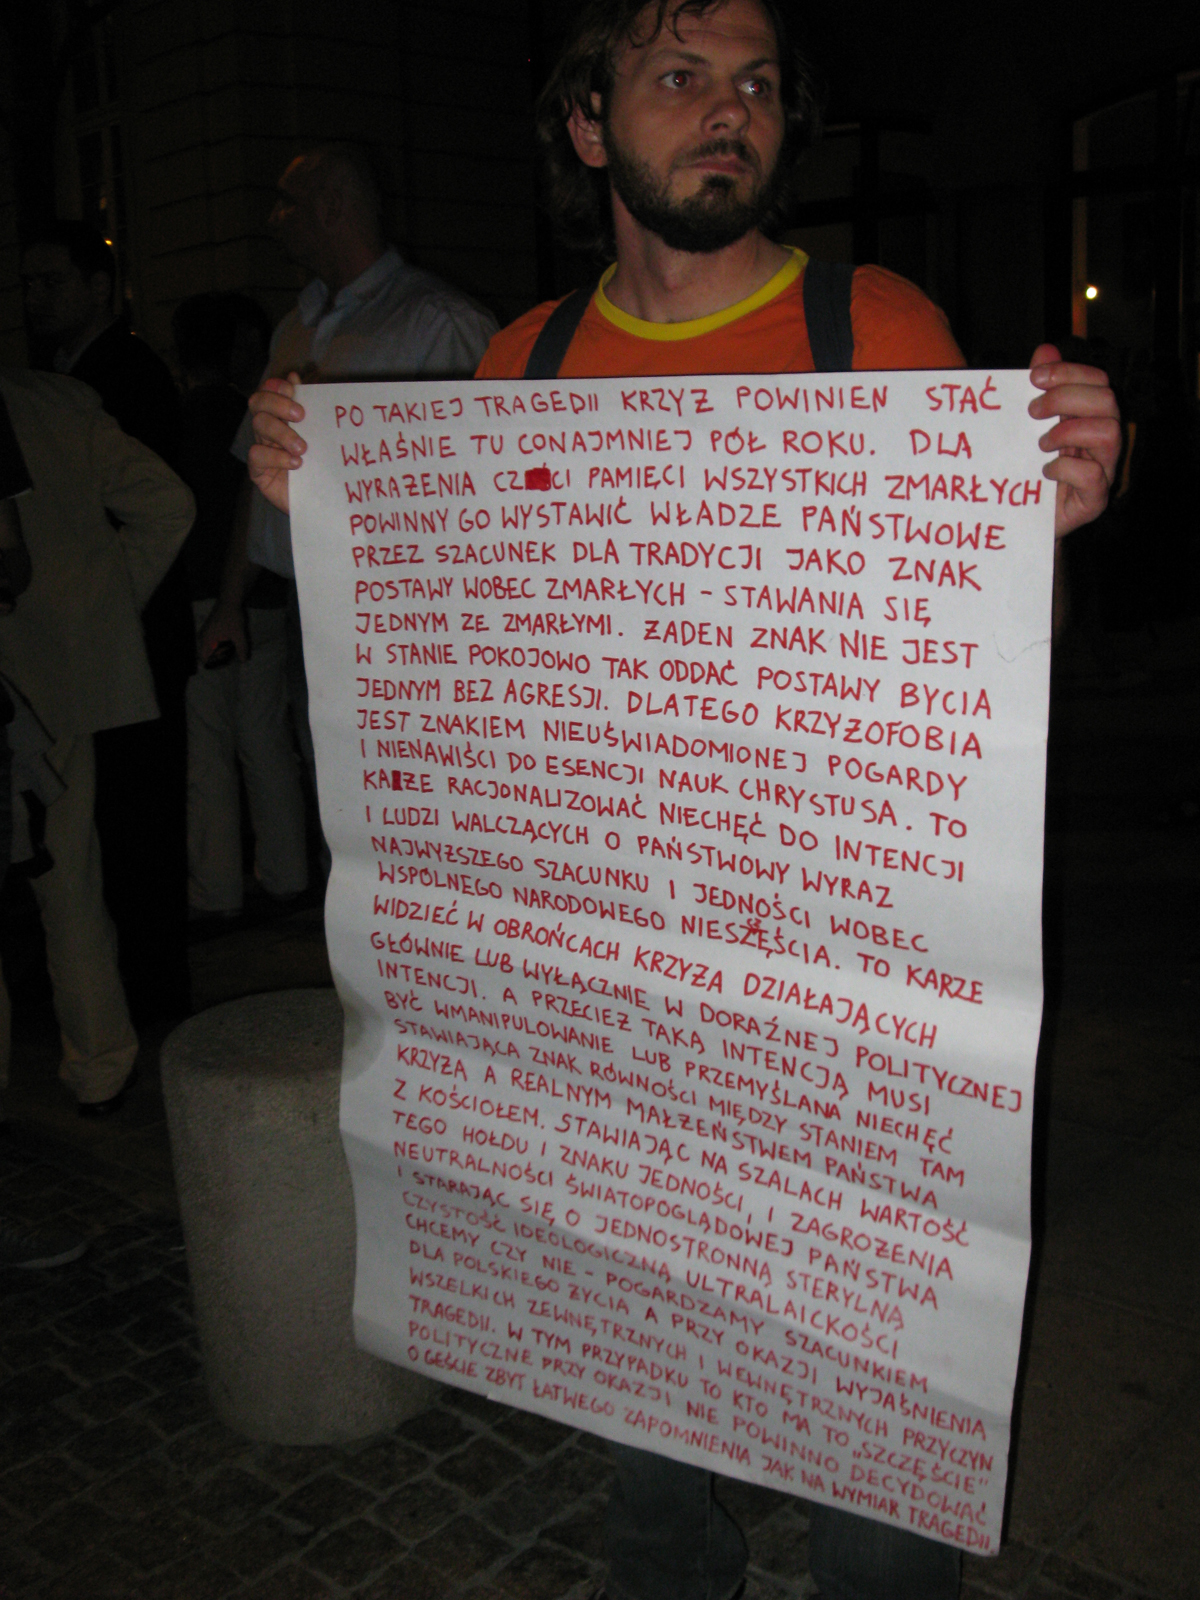 PO TAKIEJ TRAGEDII KRZYŻ POWINIEN STAĆ
WŁAŚNIE TU CONAJMNIEJ PÓŁ ROKU. DLA
WYRAŻENIA CZCI PAMIĘCI WSZYSTKICH ZMARŁYCH
POWINNY GO WYSTAWIĆ WŁADZE PAŃSTWOWE
PRZEZ SZACUNEK DLA TRADYCJI JAKO ZNAK
POSTAWY WOBEC ZMARŁYCH - STAWANIA SIĘ
JEDNYM ZE ZMARŁYMI. ŻADEN ZNAK NIE JEST
W STANIE POKOJOWO TAK ODDAĆ POSTAWY BYCIA
JEDNYM BEZ AGRESJI. DLATEGO KRZYŻOFOBIA
JEST ZNAKIEM NIEUŚWIADOMIONEJ POGARDY
I NIENAWIŚCI DO ESENCJI NAUK CHRYSTUSA. TO
KAŻE RACJONALIZOWAĆ NIECHĘĆ DO INTENCJI
I LUDZI WALCZĄCYCH O PAŃSTWOWY WYRAZ
NAJWYŻSZEGO SZACUNKU I JEDNOŚCI WOBEC
WSPÓLNEGO NARODOWEGO NIESZCZĘŚCIA. TO KARZE
WIDZIEĆ W OBROŃCACH KRZYŻA DZIAŁAJĄCYCH
GŁÓWNIE LUB WYŁĄCZNIE W DORAŹNEJ POLITYCZNEJ
INTENCJI. A PRZECIEŻ TAKĄ INTENCJĄ MUSI
BYĆ WMANIPULOWANIE LUB PRZEMYŚLANA NIECHĘĆ
STAWIAJĄCA ZNAK RÓWNOŚCI MIĘDZY STANIEM TAM
KRZYŻA A REALNYM MAŁŻEŃSTWEM PAŃSTWA
Z KOŚCIOŁEM. STAWIAJĄC NA SZALACH WARTOŚĆ
TEGO HOŁDU I ZNAKU JEDNOŚCI, I ZAGROŻENIA
NEUTRALNOŚCI ŚWIATOPOGLĄDOWEJ PAŃSTWA
I STARAJĄC SIĘ O JEDNOSTRONNĄ STERYLNĄ
CZYSTOŚĆ IDEOLOGICZNĄ ULTRALAICKOŚCI
CHCEMY CZY NIE - POGARDZAMY SZACUNKIEM
DLA POLSKIEGO ŻYCIA A PRZY OKAZJI WYJAŚNIENIA
WSZELKICH ZEWNĘTRZNYCH I WEWNĘTRZNYCH PRZYCZYN
TRAGEDII. W TYM PRZYPADKU TO KTO MA TO „SZCZĘŚCIE"
POLITYCZNE PRZY OKAZJI NIE POWINNO DECYDOWAĆ
O GEŚCIE ZBYT ŁATWEGO ZAPOMNIENIA JAK NA WYMIAR TRAGEDII.